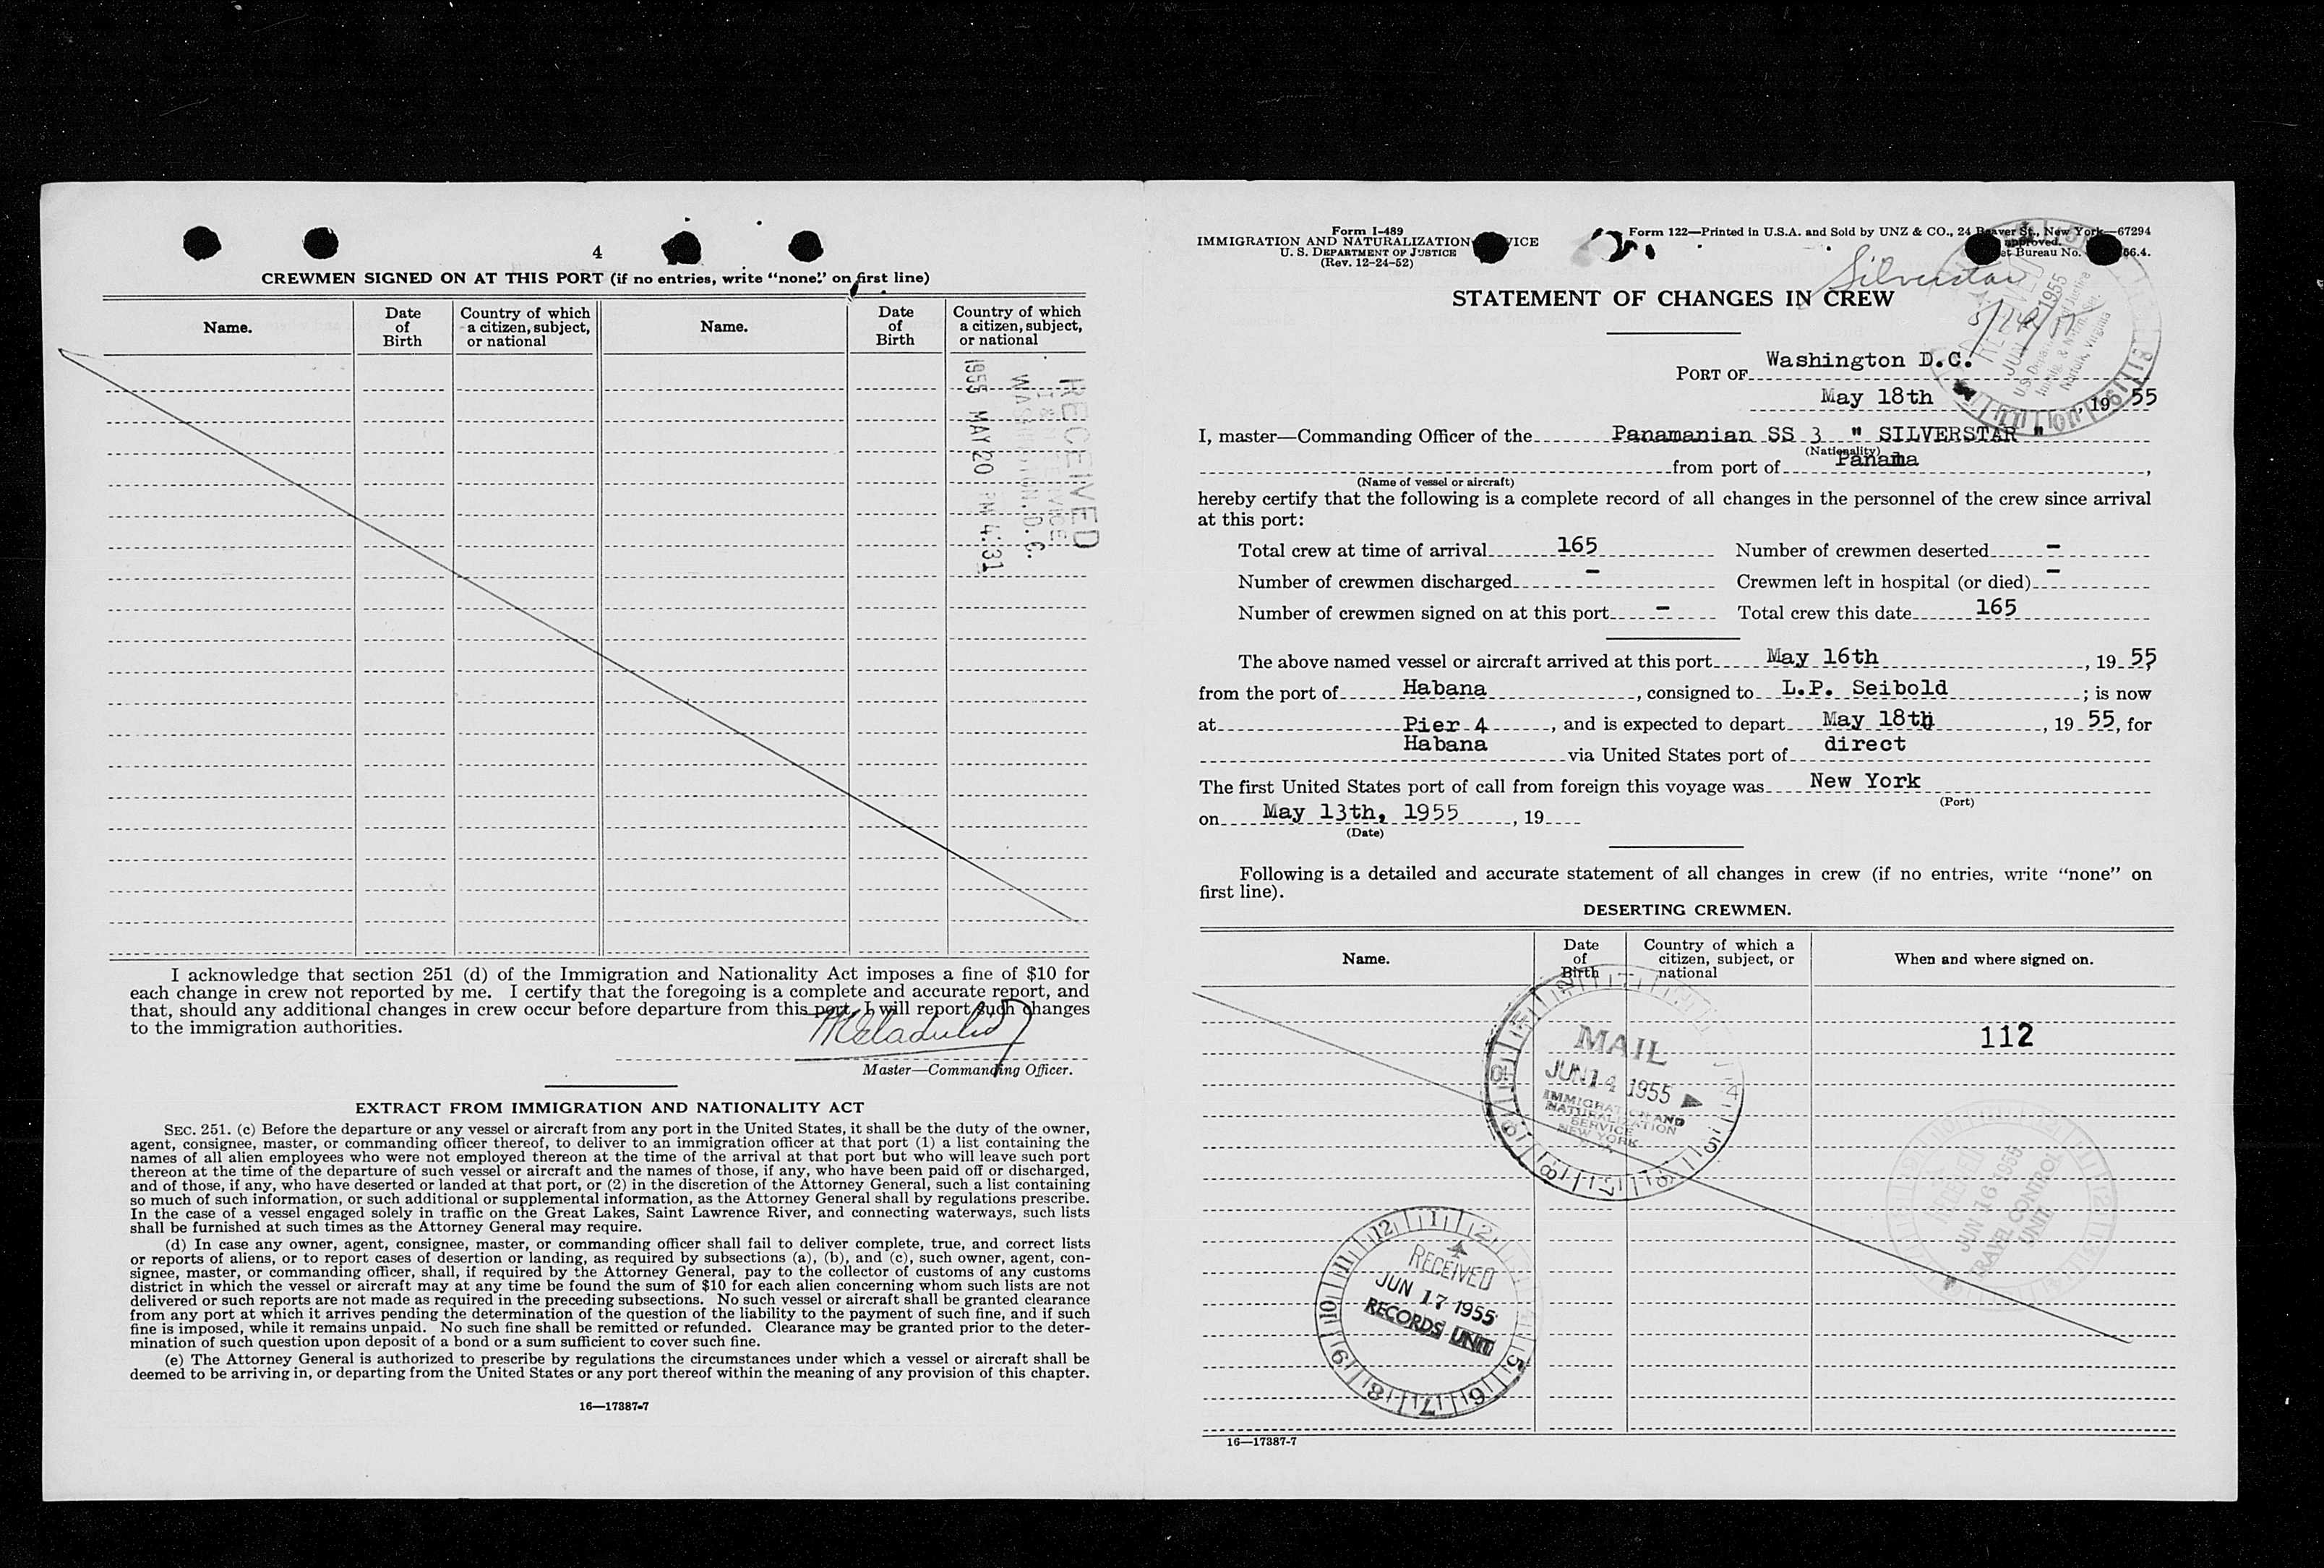 4
CREWMEN SIGNED ON AT THIS PORT (if no entries, write "none" on first line)
Name.
Date of Birth
Country of which a citizen, subject, or national
Name.
Date of Birth
Country of which a citizen, subject, or national
RECEIVED
WASHINGTON, D.C.
1955 MAY 20 PM 4:31
I acknowledge that section 251 (d) of the Immigration and Nationality Act imposes a fine of $10 for
each change in crew not reported by me. I certify that the foregoing is a complete and accurate report, and
that, should any additional changes in crew occur before departure from this port, I will report such changes
to the immigration authorities.
Master—Commanding Officer.
EXTRACT FROM IMMIGRATION AND NATIONALITY ACT
SEC. 251. (c) Before the departure or any vessel or aircraft from any port in the United States, it shall be the duty of the owner,
agent, consignee, master, or commanding officer thereof, to deliver to an immigration officer at that port (1) a list containing the
names of all alien employees who were not employed thereon at the time of the arrival at that port but who will leave such port
thereon at the time of the departure of such vessel or aircraft and the names of those, if any, who have been paid off or discharged,
and of those, if any, who have deserted or landed at that port, or (2) in the discretion of the Attorney General, such a list containing
so much of such information, or such additional or supplemental information, as the Attorney General shall by regulations prescribe.
In the case of a vessel engaged solely in traffic on the Great Lakes, Saint Lawrence River, and connecting waterways, such lists
shall be furnished at such times as the Attorney General may require.
(d) In case any owner, agent, consignee, master, or commanding officer shall fail to deliver complete, true, and correct lists
or reports of aliens, or to report cases of desertion or landing, as required by subsections (a), (b), and (c), such owner, agent, con-
signee, master, or commanding officer, shall, if required by the Attorney General, pay to the collector of customs of any customs
district in which the vessel or aircraft may at any time be found the sum of $10 for each alien concerning whom such lists are not
delivered or such reports are not made as required in the preceding subsections. No such vessel or aircraft shall be granted clearance
from any port at which it arrives pending the determination of the question of the liability to the payment of such fine, and if such
fine is imposed, while it remains unpaid. No such fine shall be remitted or refunded. Clearance may be granted prior to the deter-
mination of such question upon deposit of a bond or a sum sufficient to cover such fine.
(e) The Attorney General is authorized to prescribe by regulations the circumstances under which a vessel or aircraft shall be
deemed to be arriving in, or departing from the United States or any port thereof within the meaning of any provision of this chapter.
16—17387-7
Form I-489
IMMIGRATION AND NATURALIZATION VICE
U. S. DEPARTMENT OF JUSTICE
(Rev. 12-24-52)
Form 122—Printed in U.S.A. and Sold by UNZ & CO., 24 Beaver St., New York—67294
approved.
et Bureau No. 66.4.
Silverstar
STATEMENT OF CHANGES IN CREW
PORT OF Washington D.C.
May 18th, 19 55
I, master—Commanding Officer of the Panamanian SS 3 " SILVERSTAR "
(Nationality)
from port of Panama,
(Name of vessel or aircraft)
hereby certify that the following is a complete record of all changes in the personnel of the crew since arrival
at this port:
Total crew at time of arrival 165 Number of crewmen deserted –
Number of crewmen discharged – Crewmen left in hospital (or died) –
Number of crewmen signed on at this port – Total crew this date 165
The above named vessel or aircraft arrived at this port May 16th, 19 55,
from the port of Habana, consigned to L.P. Seibold; is now
at Pier 4, and is expected to depart May 18th, 19 55, for
Habana via United States port of direct
The first United States port of call from foreign this voyage was New York
(Port)
on May 13th, 1955, 19
(Date)
Following is a detailed and accurate statement of all changes in crew (if no entries, write "none" on
first line).
DESERTING CREWMEN.
Name.
Date of Birth
Country of which a citizen, subject, or national
When and where signed on.
112
MAIL
JUN 14 1955
IMMIGRATION AND
NATURALIZATION
SERVICE
NEW YORK
RECEIVED
JUN 16 1955
TRAVEL CONTROL
UNIT
RECEIVED
JUN 17 1955
RECORDS UNIT
16—17387-7